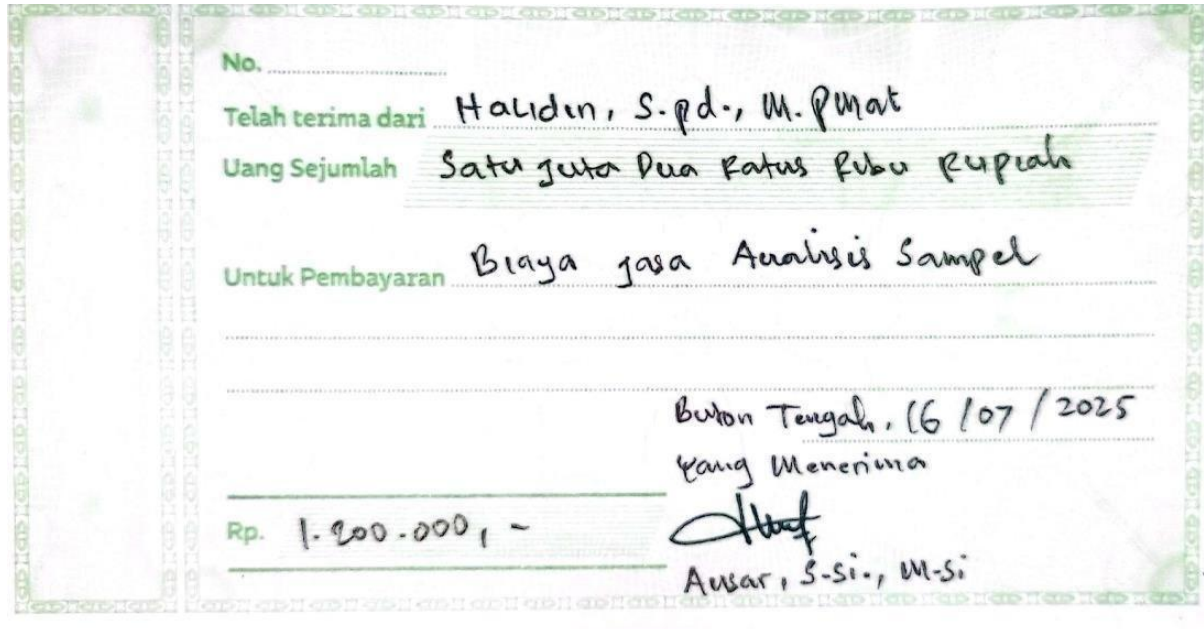 No.
Telah terima dari Halidin, S.pd., M.Pmat
Uang Sejumlah Satu juta Dua Ratus Ribu Rupiah
Untuk Pembayaran Biaya jasa Analisis Sampel
Buton Tengah, 16/07/2025
Yang Menerima
Rp. 1.200.000,-
Ansar, S.Si., M.Si